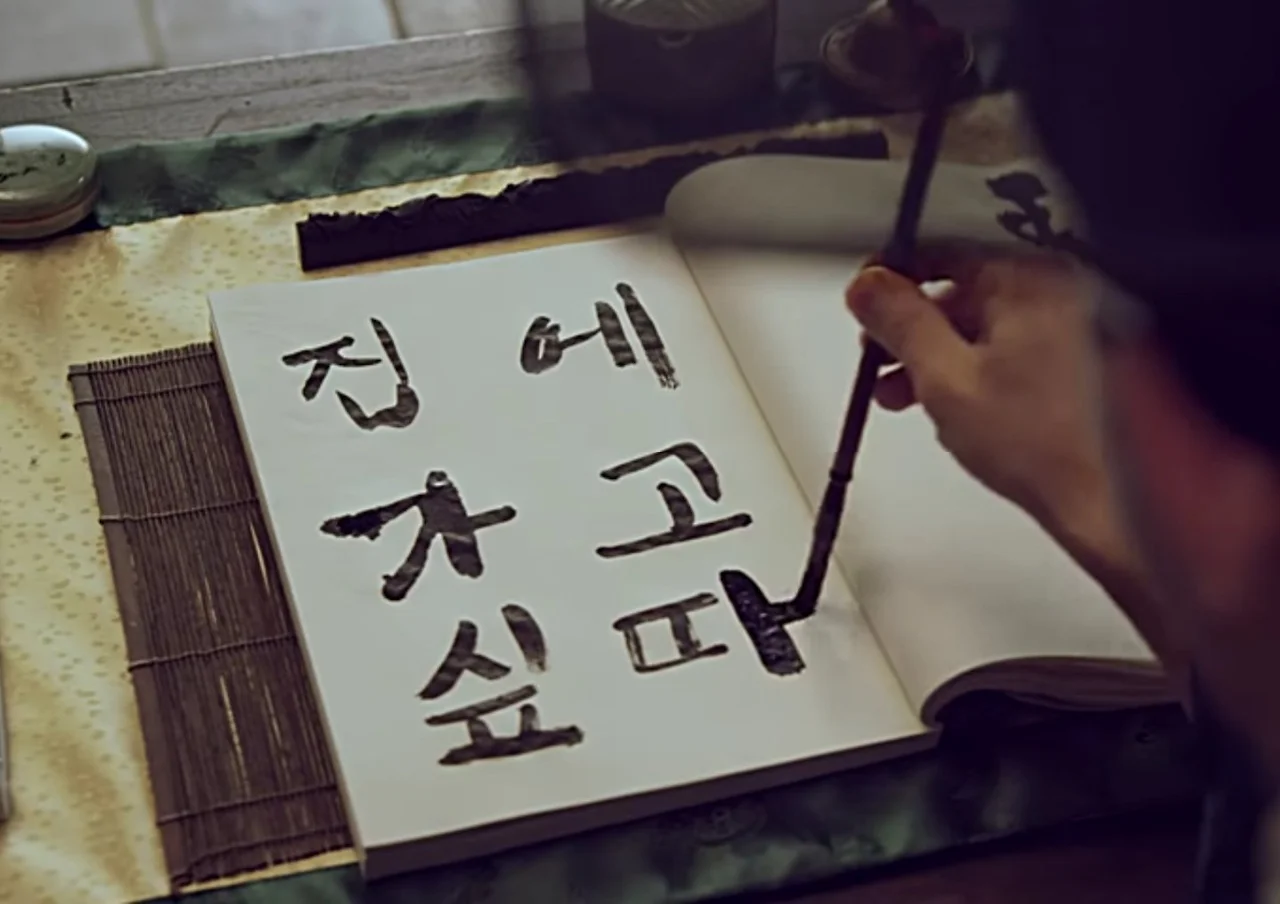 집에
가고
싶따